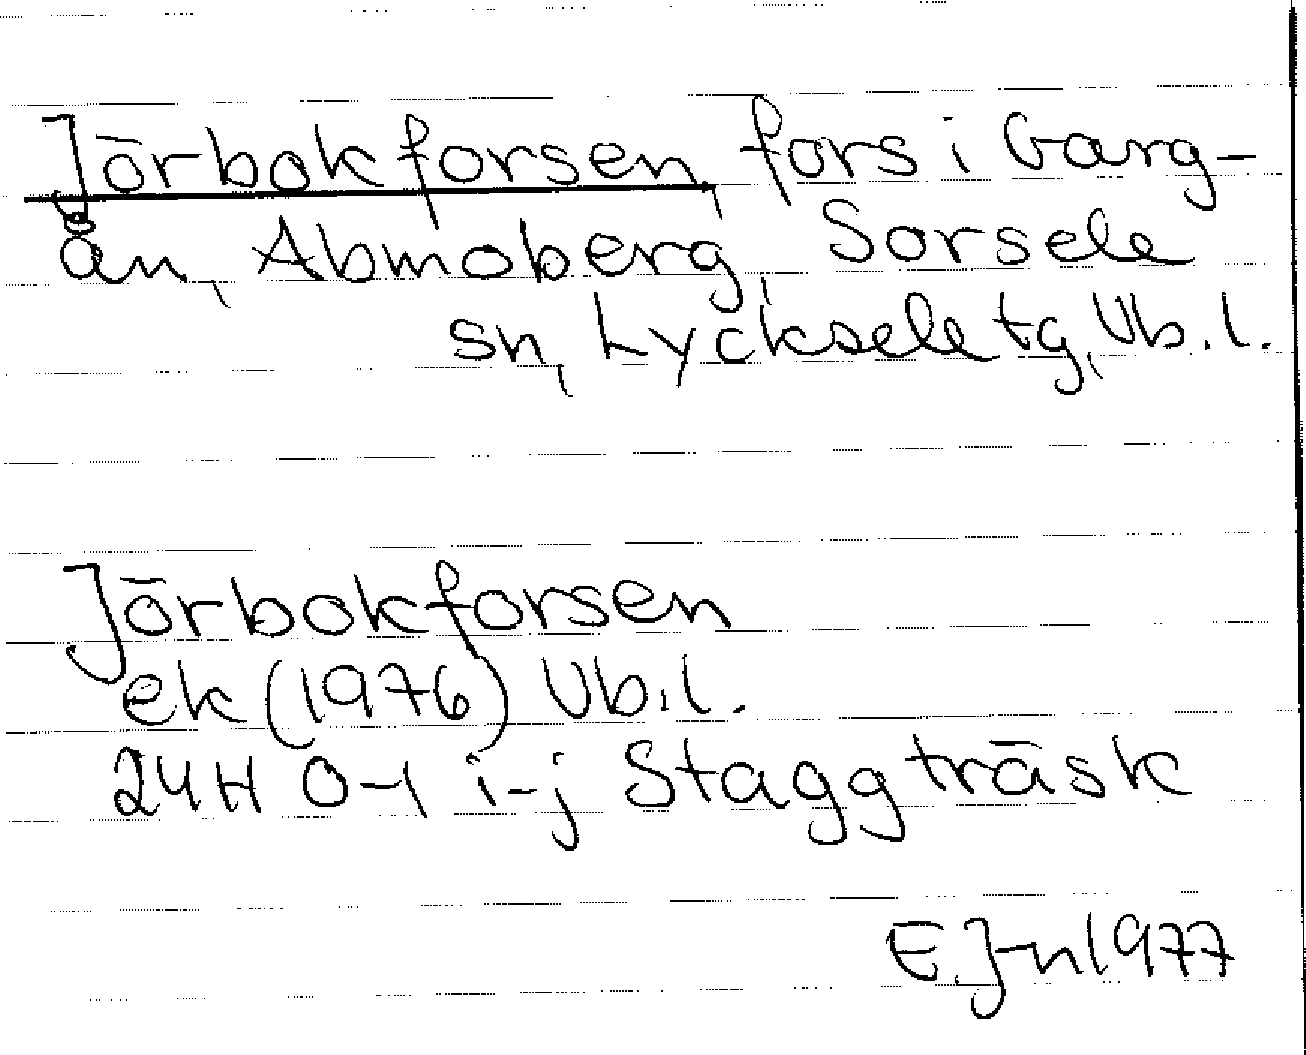 Jörbokforsen, fors i Garg-
ån, Abmoberg, Sorsele
sn, Lycksele tg, Vb.l.
Jörbokforsen
ek (1976) Vb.l.
24H 0-1 i-j Staggträsk
E J-n 1977